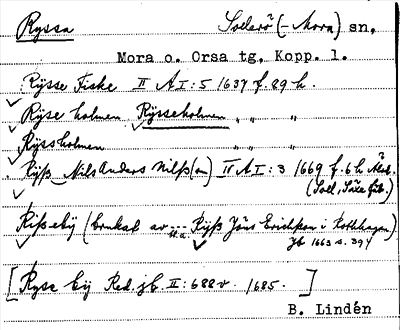 Ryssa Sollerö (- Mora) sn,
Mora o. Orsa tg, Kopp. l.
Rysse Fiske II A I : 5 1637 f. 89 h.
Ryse holmen Rysseholmen " " "
Ryssholmen
Ryß Nils Anders Nilß(on) IV A I : 3 1669 f. 6 h
(Soll,
Rißebÿ (brukat av Ryß Jöns Erichson i Rothagen)
Jb 1663 s. 394
[Ryse bÿ Red. jb. II : 688 v. 1685. ]
B. Lindén